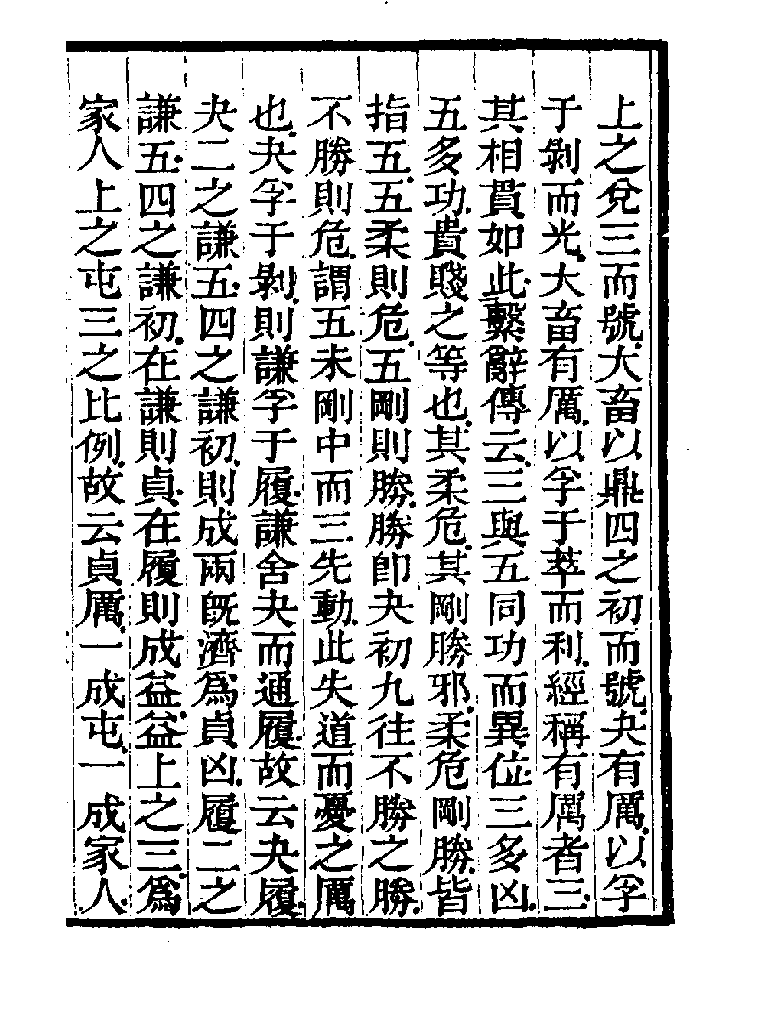 上之兌三而號大畜以鼎四之初而號夬有厲以孚
于剝而光大畜有厲以孚于萃而利經稱有厲者三
其相貫如此繫辭傳云三與五同功而異位三多凶
五多功貴賤之等也其柔危其剛勝邪柔危剛勝皆
指五五柔則危五剛則勝勝卽夬初九往不勝之勝
不勝則危謂五未剛中而三先動此失道而憂之厲
也夬孚于剝則謙孚于履謙舍夬而通履故云夬履
夬二之謙五四之謙初則成兩旣濟爲貞凶履二之
謙五四之謙初在謙則貞在履則成益益上之三爲
家人上之屯三之比例故云貞厲一成屯一成家人